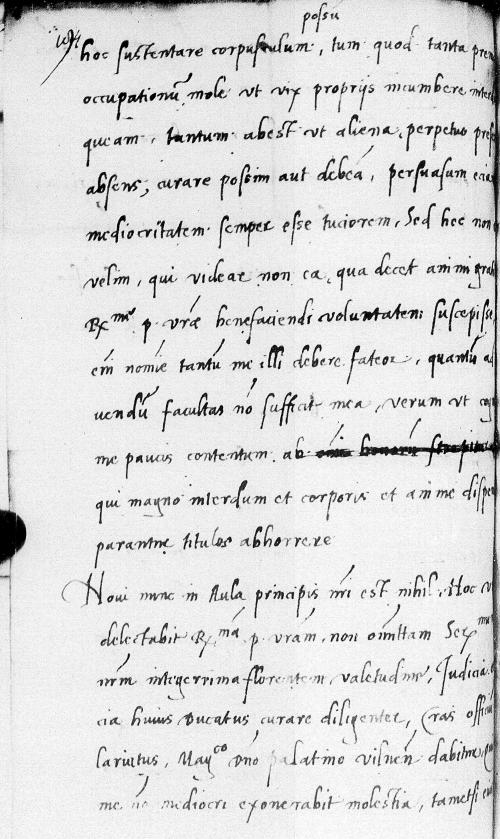 possū
hoc sustentare corpusculum, tum quod tanta prem
occupationū mole ut vix proprijs incumbere inter
queam, tantum abest ut aliena, perpetuo pres
absens, curare possim aut debeā, persuasum etia
mediocritatem semper esse tuciorem, Sed hec non
velim, qui videar non ea, qua decet animi gra
Rx^me p. vrae benefaciendi voluntatem suscepisse
eni nomie tantū me illi debere fateor, quantū ad
uendū facultas nō sufficit mea, verum ut cog
me paucis contentum ab
qui magno interdum et corporis et anime dispe
parantur titulos abhorrere
Novi nunc in Aula principis nri est nihil, Hoc
delectabit Rx^mā p. vram, non omittam Ser^mu
nrm integerrima florentem valetudine, Judicia
cia huius Ducatus, curare diligenter, Cras offici
lariatus, Mag^co Dno palatino vilnen dabitur
me nō mediocri exonerabit molestia, tametsi